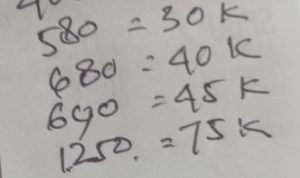 580 = 30 K
680 = 40 K
690 = 45 K
1250. = 75 K